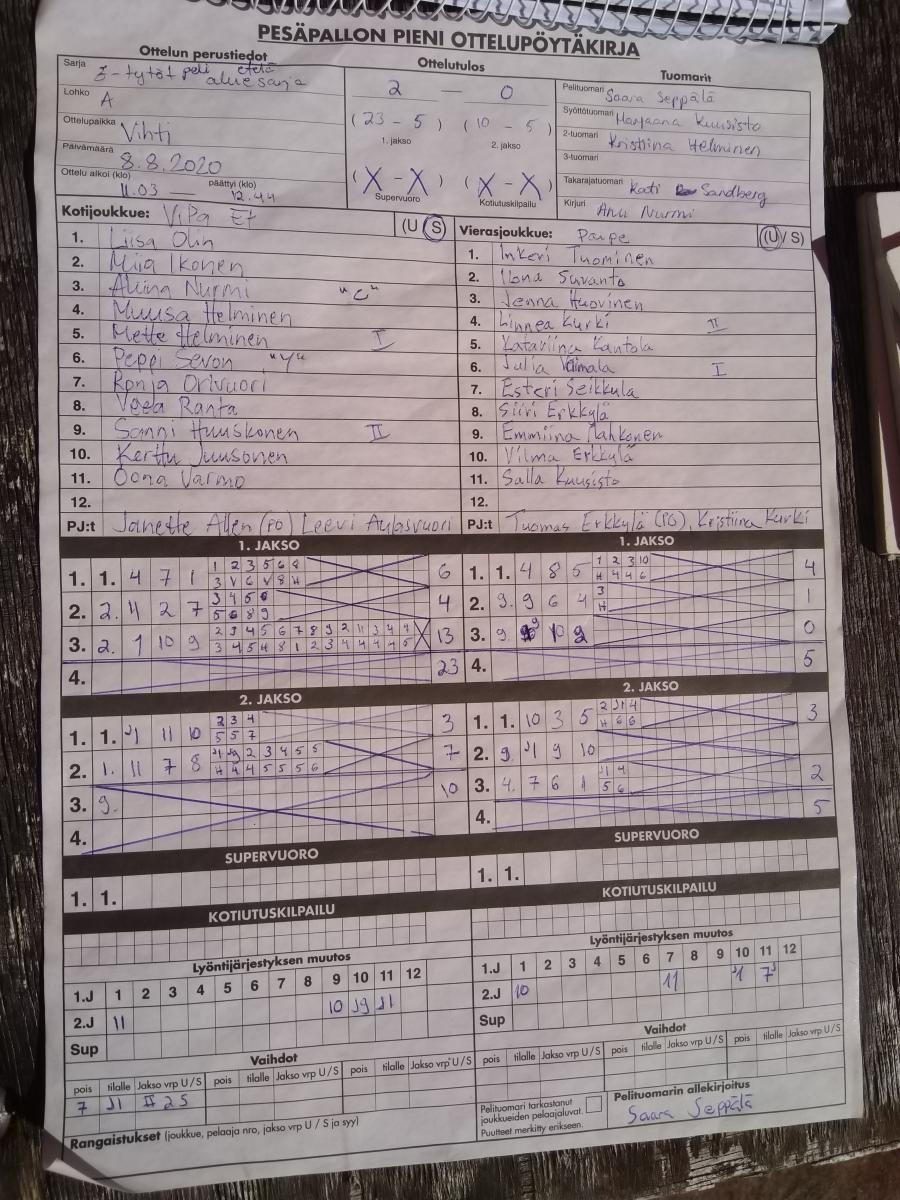 PESÄPALLON PIENI OTTELUPÖYTÄKIRJA
Ottelun perustiedot
Ottelutulos
Tuomarit
Sarja E-tytöt peli etelä aluesarja
Lohko A
Ottelupaikka Vihti
Päivämäärä 8.8.2020
Ottelu alkoi (klo) 11.03 — päättyi (klo) 12.44
2 — 0
(23 - 5) (10 - 5)
1. jakso 2. jakso
(X - X) (X - X)
Supervuoro Kotiutuskilpailu
Pelituomari Saara Seppälä
Syöttötuomari Marjaana Kuusisto
2-tuomari Kristiina Helminen
3-tuomari
Takarajatuomari Kati Sandberg
Kirjuri Anu Nurmi
Kotijoukkue: ViPa E+ (U S)
1. Liisa Olin
2. Miia Ikonen
3. Aliina Nurmi "C"
4. Muusa Helminen
5. Mette Helminen I
6. Peppi Sevon "V"
7. Ronja Orivuori
8. Veera Ranta
9. Sanni Huuskonen II
10. Kerttu Juusonen
11. Oona Varmo
12.
PJ:t Janette Allen (PO) Leevi
Vierasjoukkue: PaUpe (U/S)
1. Inkeri Tuominen
2. Ilona Suvanto
3. Jenna Huovinen
4. Linnea Kurki II
5. Katariina Kantola
6. Julia I
7. Esteri Seikkula
8. Siiri Erkkylä
9. Emmiina Mahkonen
10. Vilma Erkkylä
11. Salla Kuusisto
12.
PJ:t Tuomas Erkkylä (PO), Kristiina Kurki
1. JAKSO
1. 1. 4 7 1 6
1 2 3 5 6 8
2. 2. 11 2 7 4
3 4 5 6
5 6 8 9
3. 2. 1 10 9 13
2 3 4 5 6 7 8 9 2 11 3 4 4
4. 23
1. JAKSO
1. 1. 4 8 5 4
1 2 3 10
H 4 4 6
2. 9. 9 6 4 1
3
H
3. 9. 10 2 0
4. 5
2. JAKSO
1. 1. J1 11 10 3
2 3 4
5 5 7
2. 1. 11 7 8 7
J1 J9 2 3 4 5 5
H 4 4 5 5 5 6
3. 9. 10
4.
2. JAKSO
1. 1. 10 3 5 3
2 J1 4
H 6 6
2. 9. J1 9 10
3. 4. 7 6 1 2
J1 4
5 6
4. 5
SUPERVUORO
1. 1.
SUPERVUORO
1. 1.
KOTIUTUSKILPAILU
KOTIUTUSKILPAILU
Lyöntijärjestyksen muutos
1.J 1 2 3 4 5 6 7 8 9 10 11 12
2.J 11 10 J9 J1
Sup
Lyöntijärjestyksen muutos
1.J 1 2 3 4 5 6 7 8 9 10 11 12
2.J 10 11 J1 7
Sup
Vaihdot
pois tilalle Jakso vrp U/S pois tilalle Jakso vrp U/S pois tilalle Jakso vrp U/S
7 J1 II 2 S
Vaihdot
pois tilalle Jakso vrp U/S pois tilalle Jakso vrp U/S pois tilalle Jakso vrp U/S
Rangaistukset (joukkue, pelaaja nro, jakso vrp U / S ja syy)
Pelituomari tarkastanut
joukkueiden pelaajaluvat.
Puutteet merkitty erikseen.
Pelituomarin allekirjoitus
Saara Seppälä